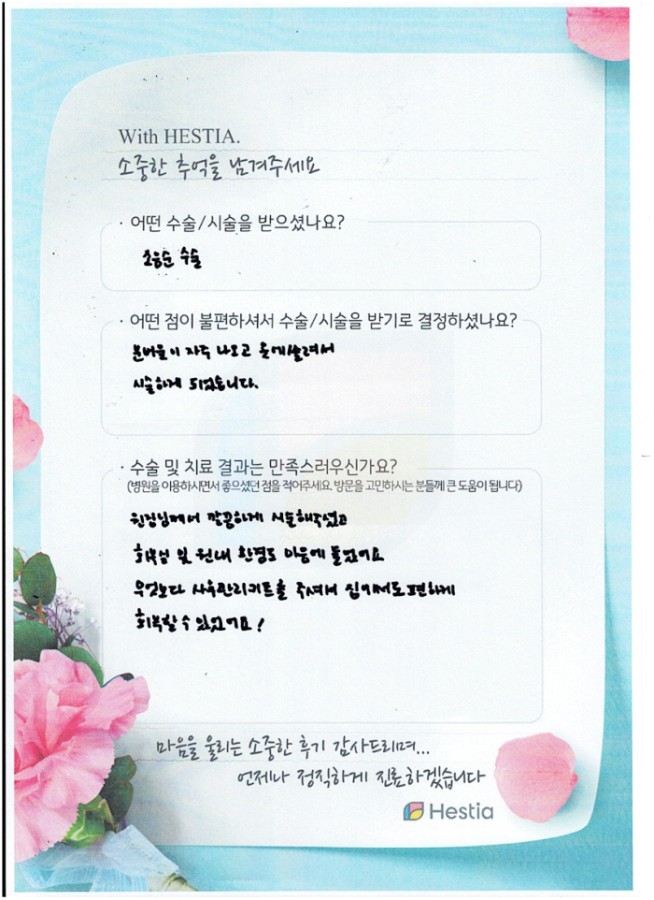 With HESTIA.
소중한 추억을 남겨주세요
· 어떤 수술/시술을 받으셨나요?
소음순 수술
· 어떤 점이 불편하셔서 수술/시술을 받기로 결정하셨나요?
분비물이 자주 나오고 옷에 쓸려서
시술하게 되었습니다.
· 수술 및 치료 결과는 만족스러우신가요?
(병원을 이용하시면서 좋으셨던 점을 적어주세요. 방문을 고민하시는 분들께 큰 도움이 됩니다)
원장님께서 깔끔하게 시술해주셨고
회복실 및 원내 환경도 마음에 들었어요
무엇보다 사후관리키트를 주셔서 집에서도 편하게
회복할 수 있었어요!
마음을 울리는 소중한 후기 감사드리며...
언제나 정직하게 진료하겠습니다
Hestia